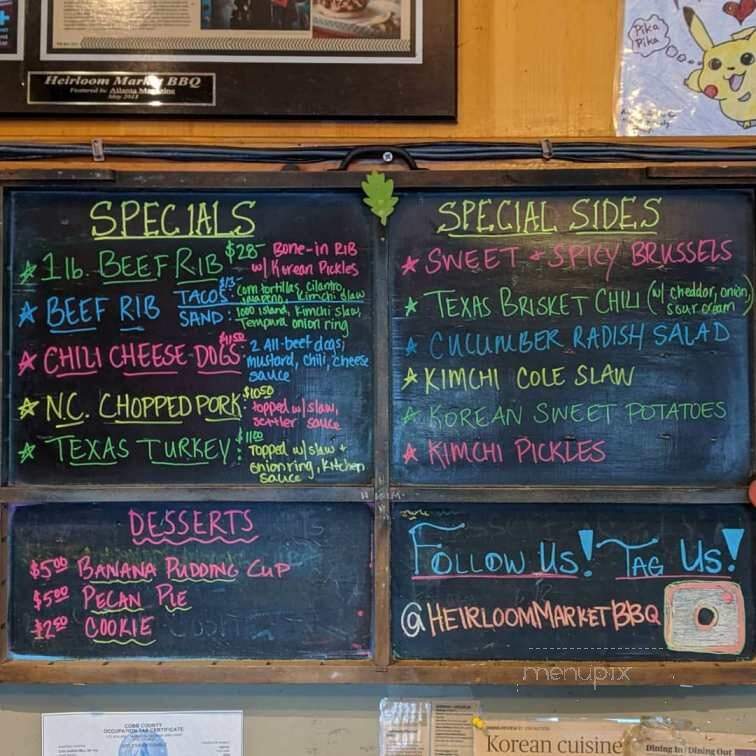 Heirloom Market BBQ
Featured by Atlanta Magazine
May 2011
Pika
Pika
SPECIALS
1 lb. BEEF RIB $28- Bone-in RIB
w/ Korean Pickles
BEEF RIB TACOS: $13 corn tortillas, cilantro,
jalapeno, kimchi slaw
SAND: 1000 island, kimchi slaw,
Tempura onion ring
CHILI CHEESE DOGS: $11.50 2 All-beef dogs,
mustard, chili, cheese
sauce
N.C. CHOPPED PORK: $10.50
topped w/ slaw,
settler sauce
TEXAS TURKEY: $11.00
Topped w/ slaw +
onion ring, Kitchen
sauce
SPECIAL SIDES
SWEET + SPICY BRUSSELS
TEXAS BRISKET CHILI (w/ cheddar, onion,
sour cream)
CUCUMBER RADISH SALAD
KIMCHI COLE SLAW
KOREAN SWEET POTATOES
KIMCHI PICKLES
DESSERTS
$5.00 BANANA PUDDING CUP
$5.00 PECAN PIE
$2.50 COOKIE
FOLLOW US! TAG US!
@HEIRLOOMMARKETBBQ
menupix
COBB COUNTY
OCCUPATION TAX CERTIFICATE
Korean cuisine
Dining In / Dining Out